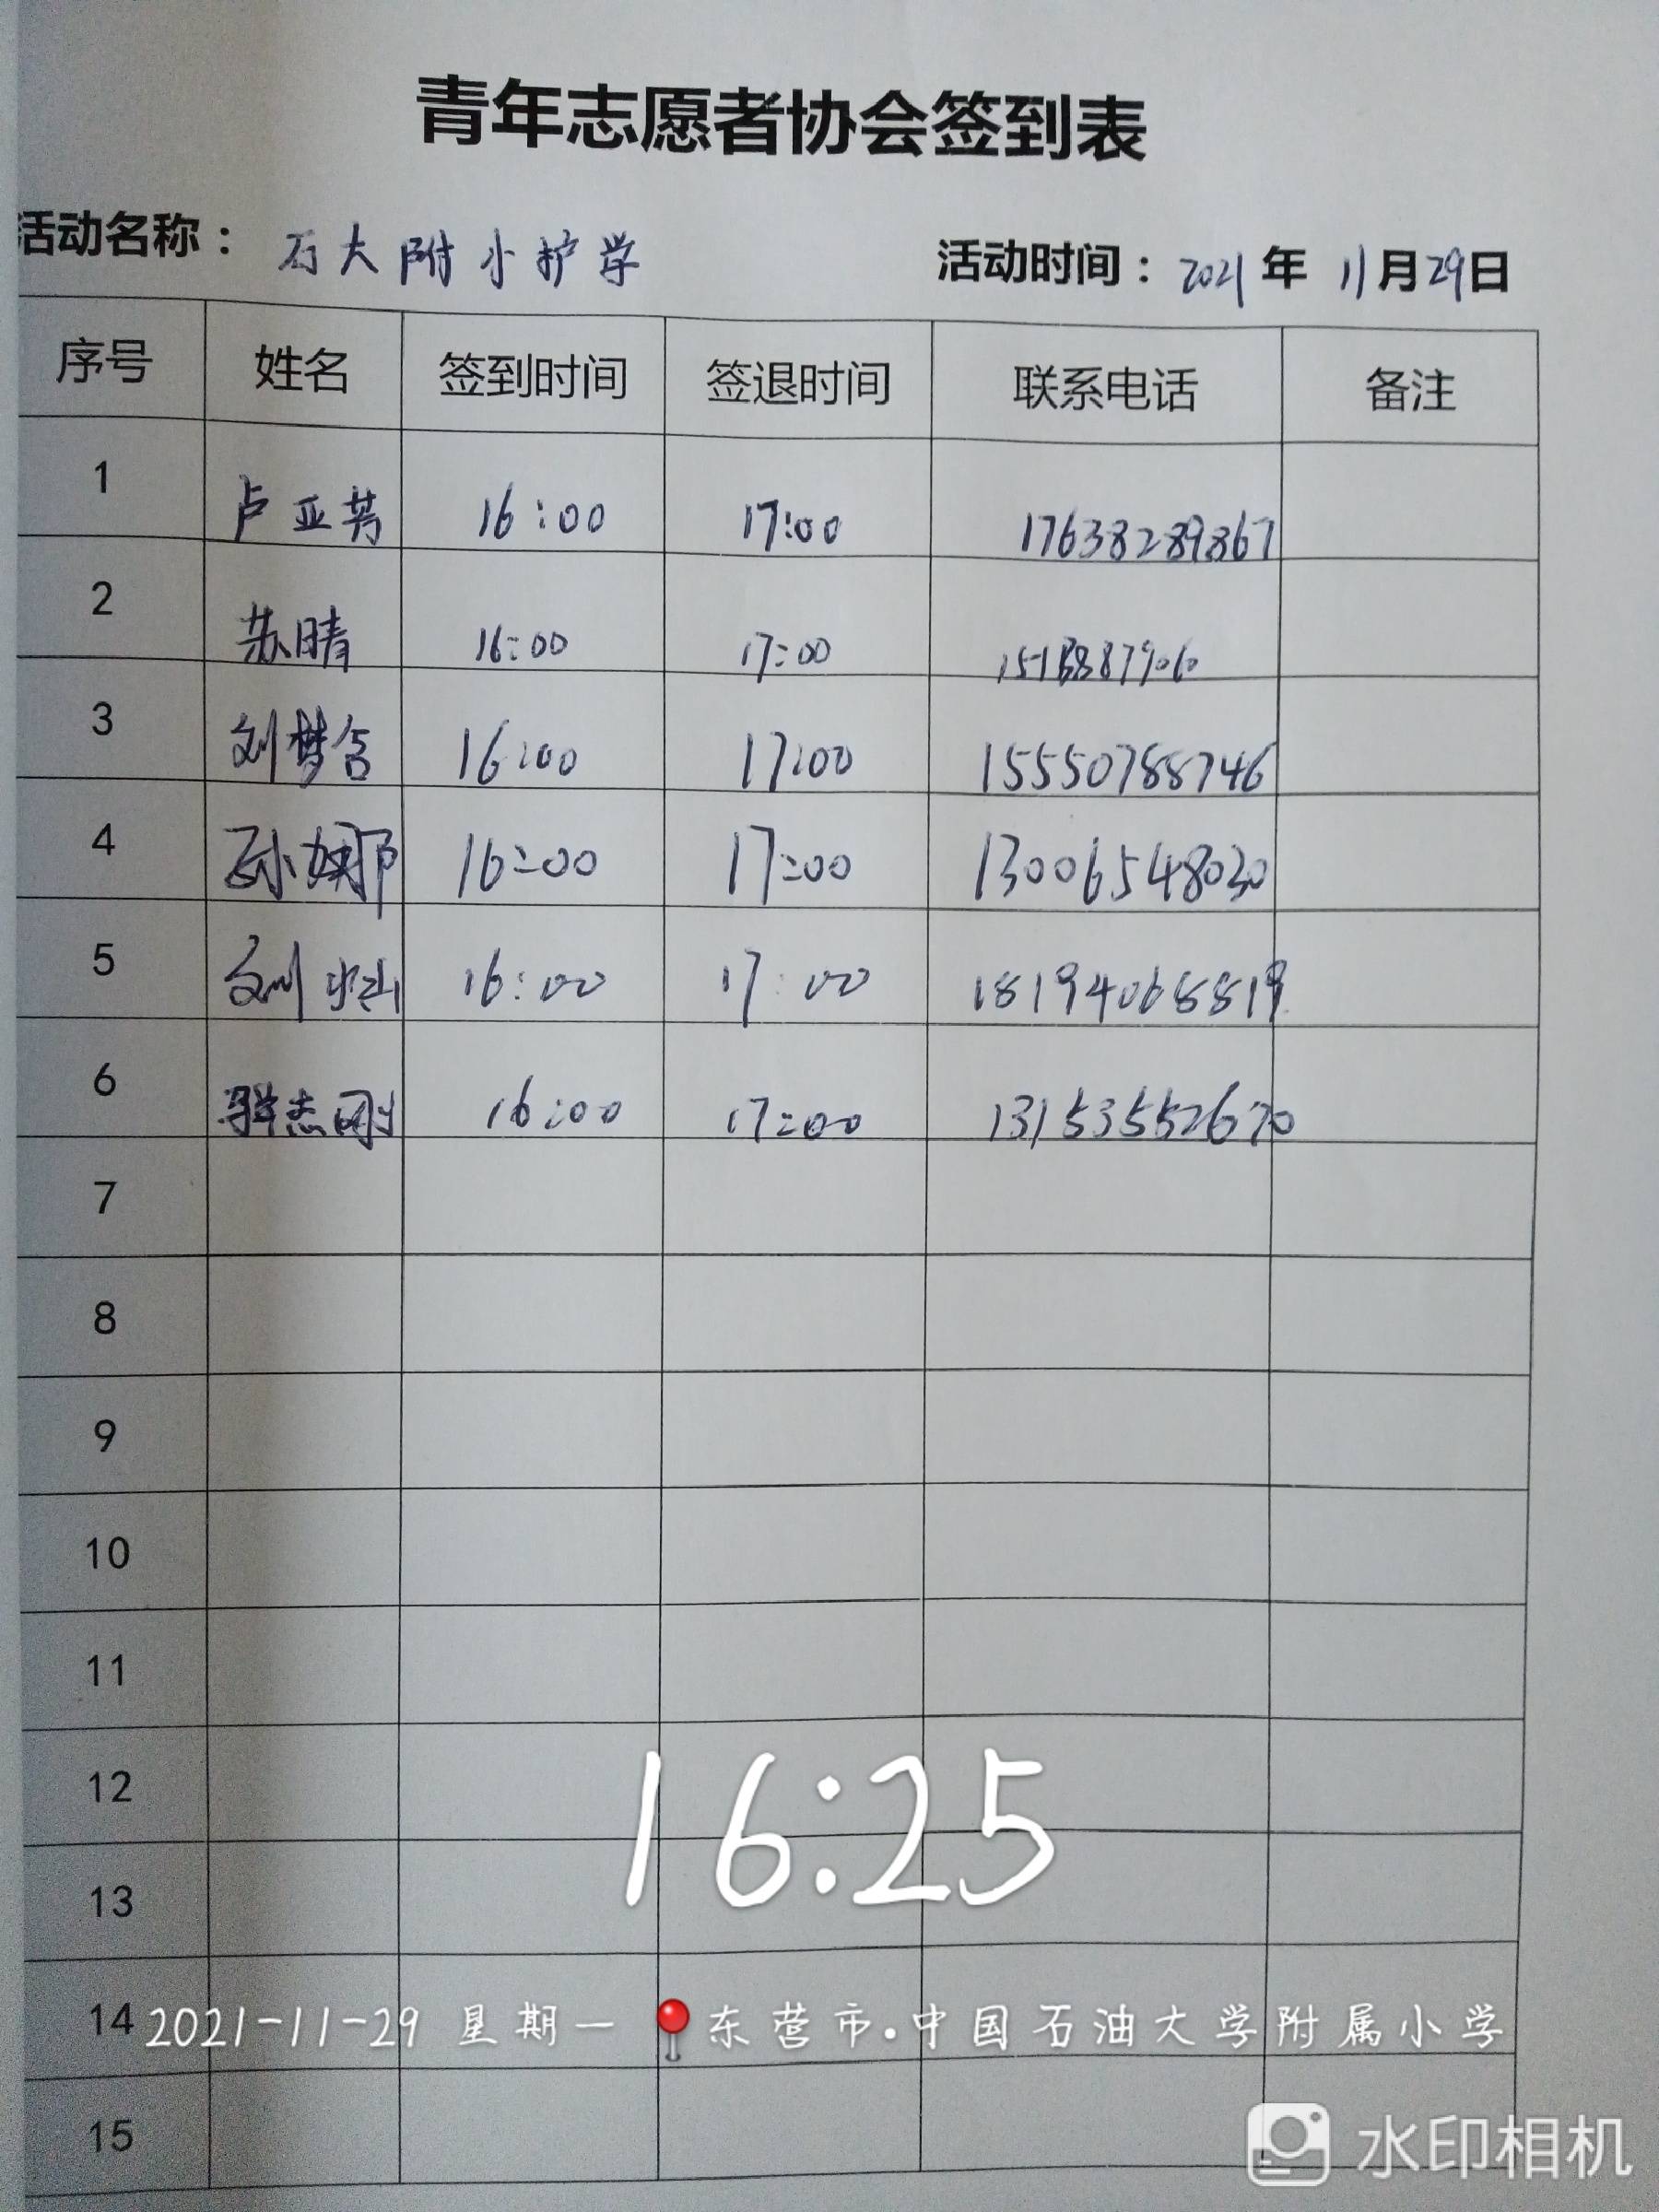 青年志愿者协会签到表
活动名称： 石大附小护学 活动时间： 2021年 11月29日
序号 姓名 签到时间 签退时间 联系电话 备注
1 卢亚 16:00 17:00 17638289867
2 苏晴 16:00 17:00
3 刘梦含 16:00 17:00 15550788746
4 孙娜 16:00 17:00 13006548030
5 刘 16:00 17:00 18194068819
6 志刚 16:00 17:00 13153552670
7
8
9
10
11
12
16:25
13
14
2021-11-29 星期一 东营市.中国石油大学附属小学
15
水印相机